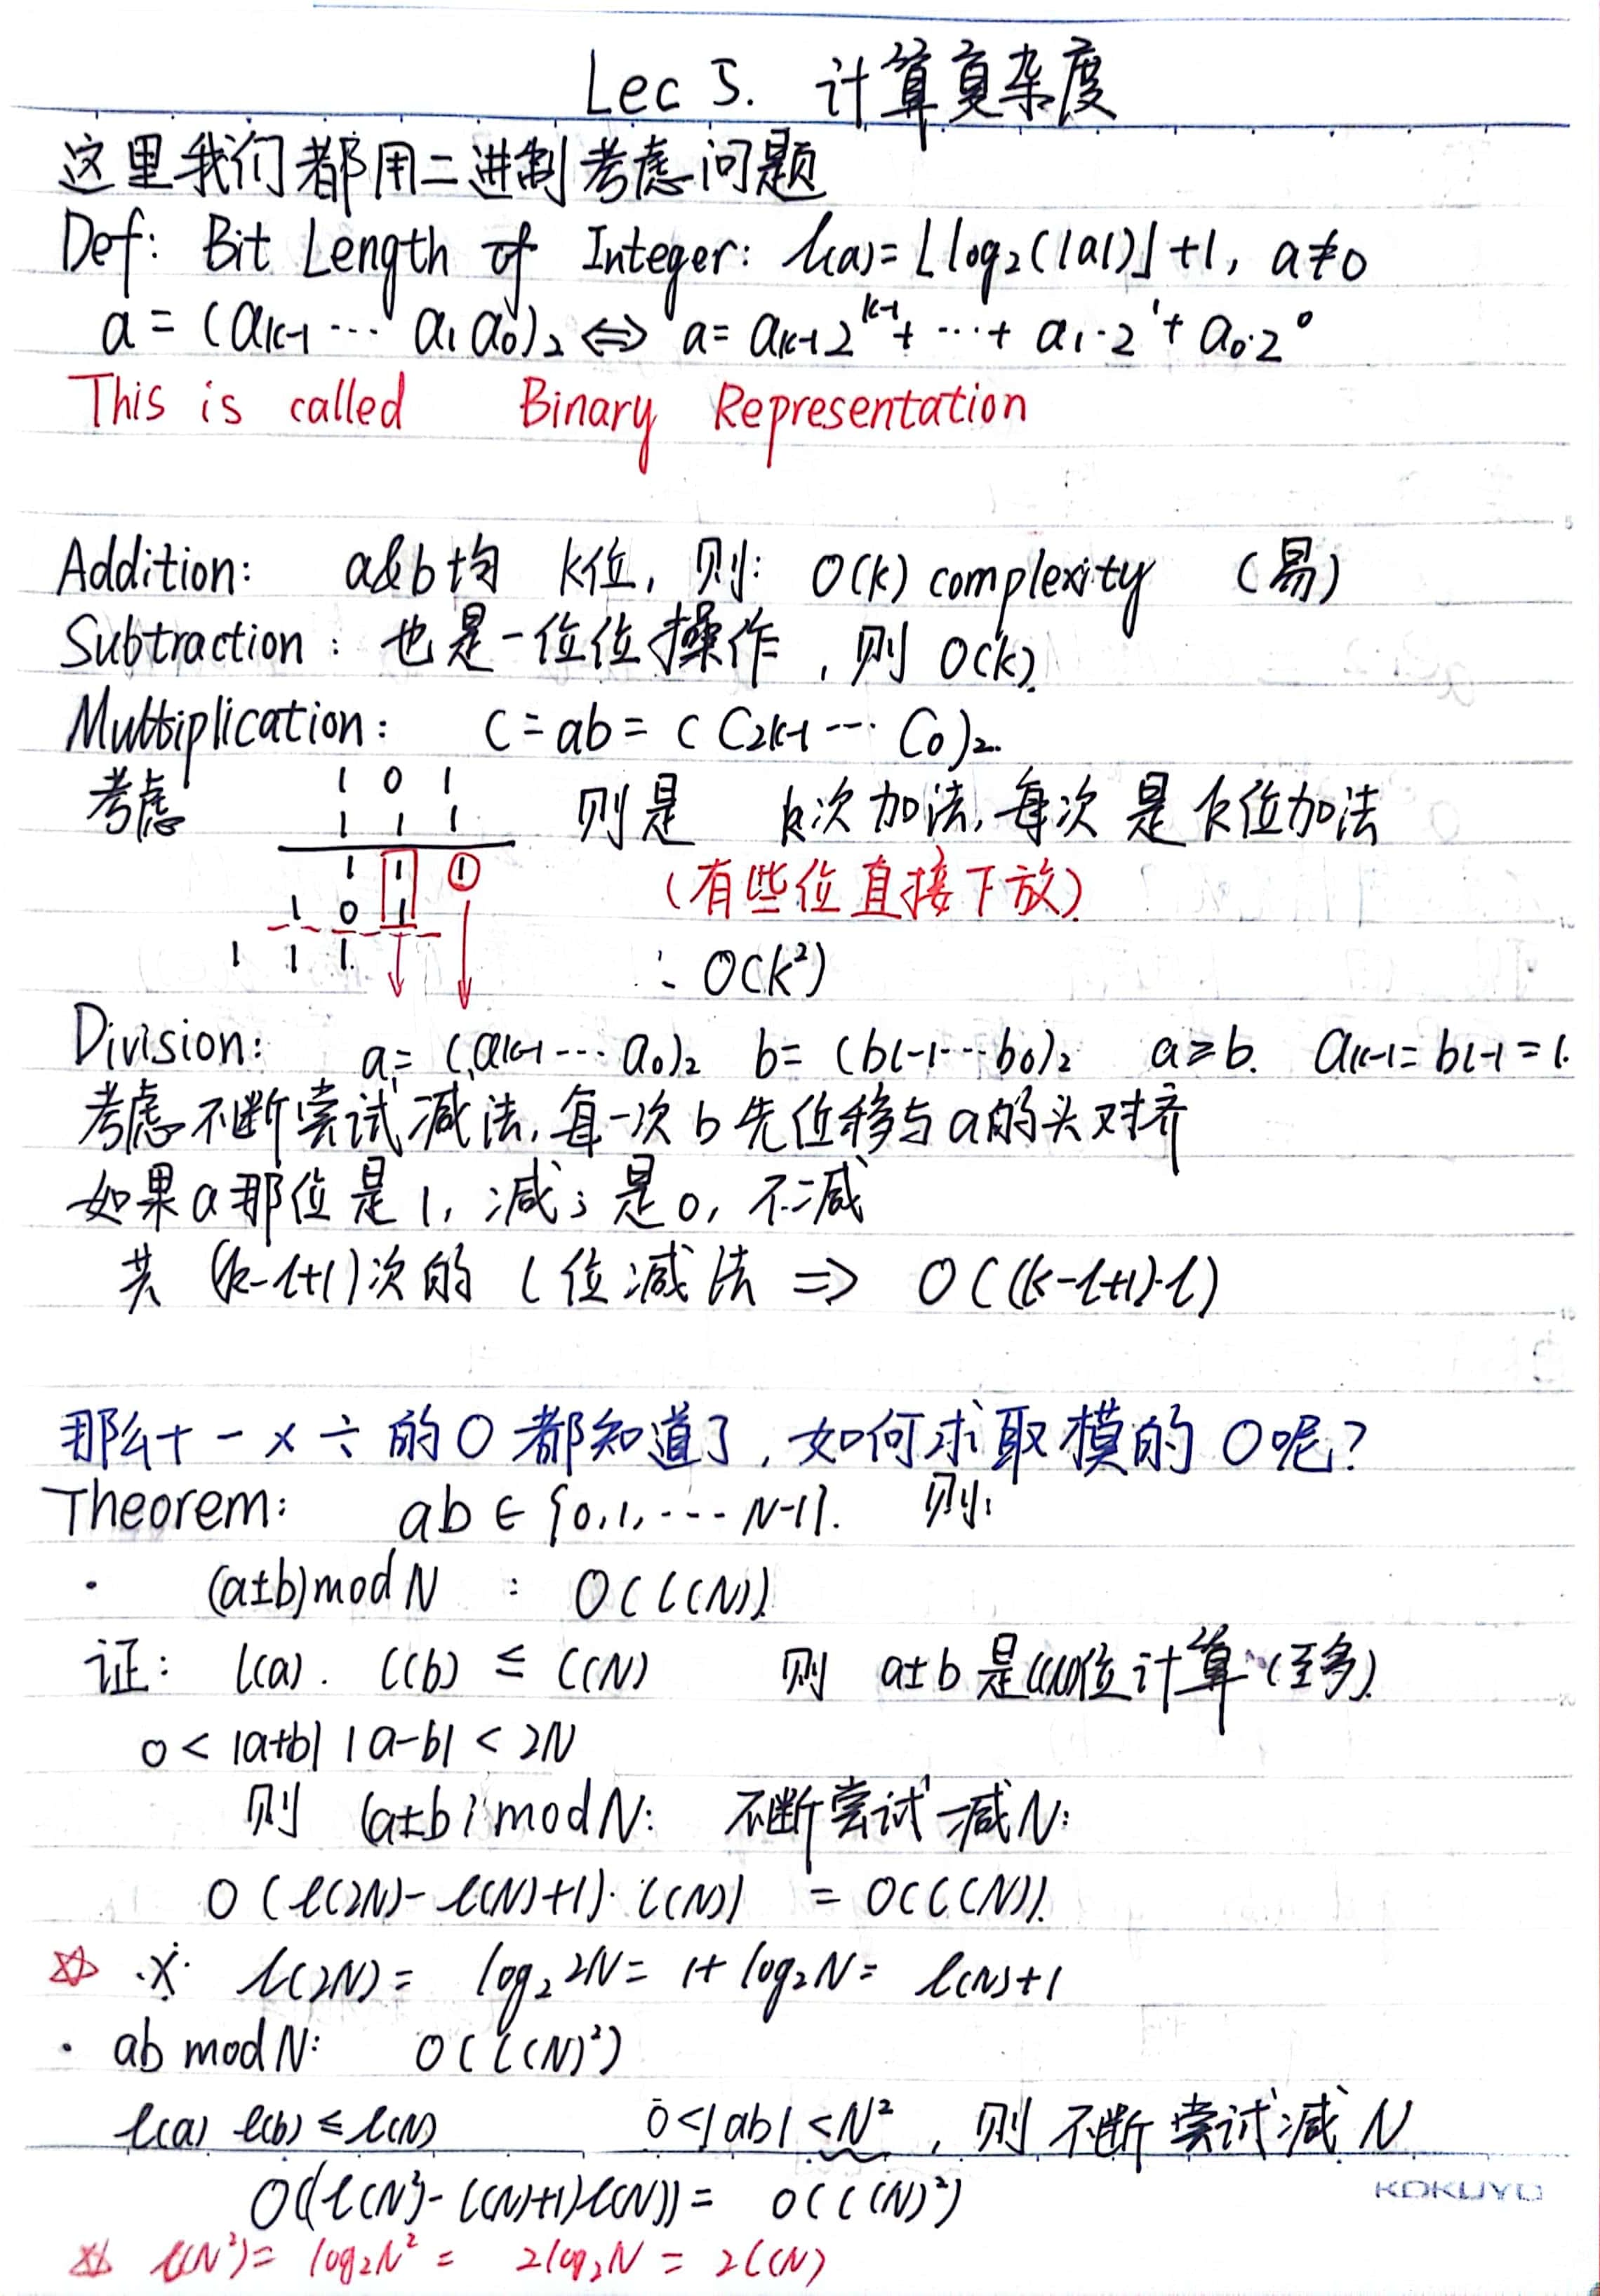 Lec 5. 计算复杂度
这里我们都用二进制考虑问题
Def: Bit Length of Integer: l(a)=⌊log₂(|a|)⌋+1, a≠0
a = (aₖ₋₁ ··· a₁ a₀)₂ ⇔ a = aₖ₋₁2ᵏ⁻¹ + ··· + a₁·2¹ + a₀·2⁰
This is called Binary Representation
Addition: a&b均 k位, 则: O(k) complexity (易)
Subtraction: 也是一位位操作, 则 O(k).
Multiplication: C = ab = (C₂ₖ₋₁ ··· C₀)₂.
考虑 1 0 1 则是 k次加法, 每次是k位加法
1 1 1
1 1 1 (有些位直接下放)
1 0 1
1 1 1 ∴ O(k²)
Division: a = (aₖ₋₁ ··· a₀)₂ b = (bₗ₋₁ ··· b₀)₂ a≥b. aₖ₋₁ = bₗ₋₁ = 1.
考虑不断尝试减法, 每一次b先位移与a的头对齐
如果a那位是1, 减; 是0, 不减
共 (k-l+1)次的 l位减法 ⇒ O((k-l+1)·l)
那么+ - × ÷ 的O都知道了, 如何求取模的O呢?
Theorem: ab ∈ {0,1,···N-1}. 则:
· (a±b)mod N : O(l(N)).
证: l(a). l(b) ≤ l(N) 则 a±b是l(N)位计算(至多).
0 < |a+b| |a-b| < 2N
则 (a±b) mod N: 不断尝试减N:
O(l(2N)-l(N)+1)·l(N) = O(l(N)).
☆ ※ l(2N) = log₂2N = 1+log₂N = l(N)+1
· ab mod N: O(l(N)²)
l(a) l(b) ≤ l(N) 0<|ab|<N², 则不断尝试减N
O((l(N²)-l(N)+1)l(N)) = O(l(N)²)
☆ l(N²) = log₂N² = 2log₂N = 2l(N)
KOKUYO